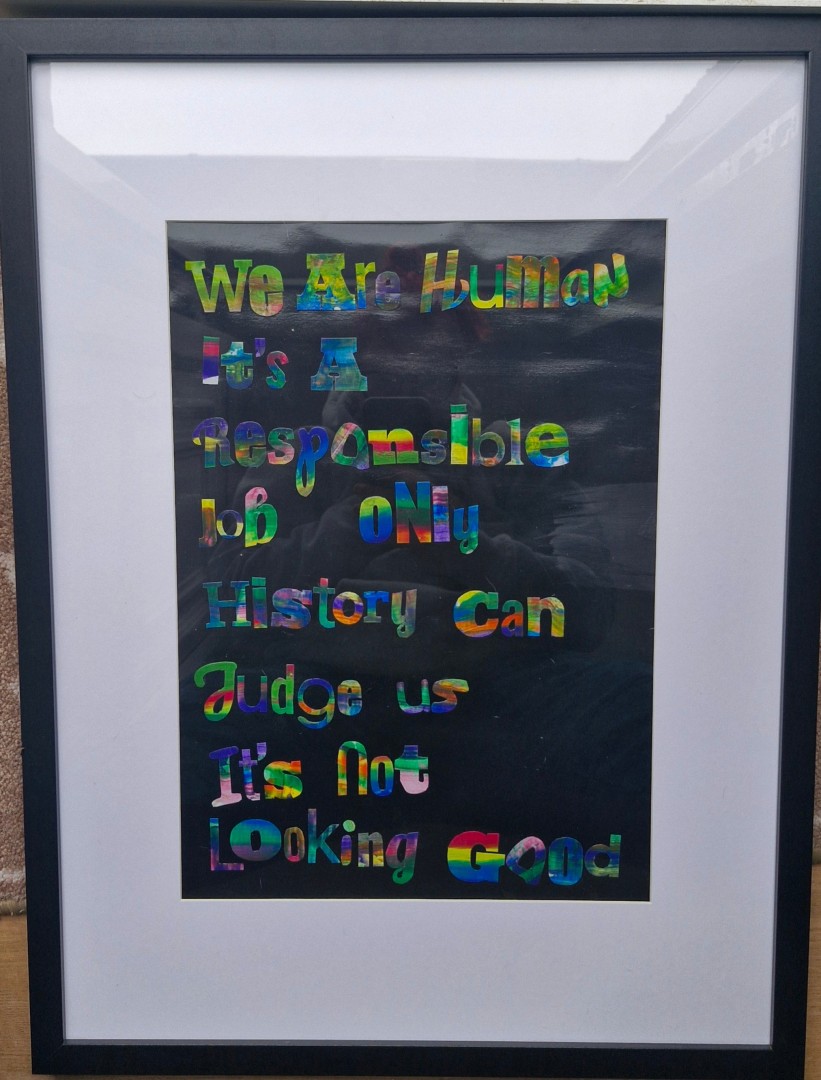 We Are Human
It's A
Responsible
Job oNly
History Can
Judge us
It's Not
Looking Good